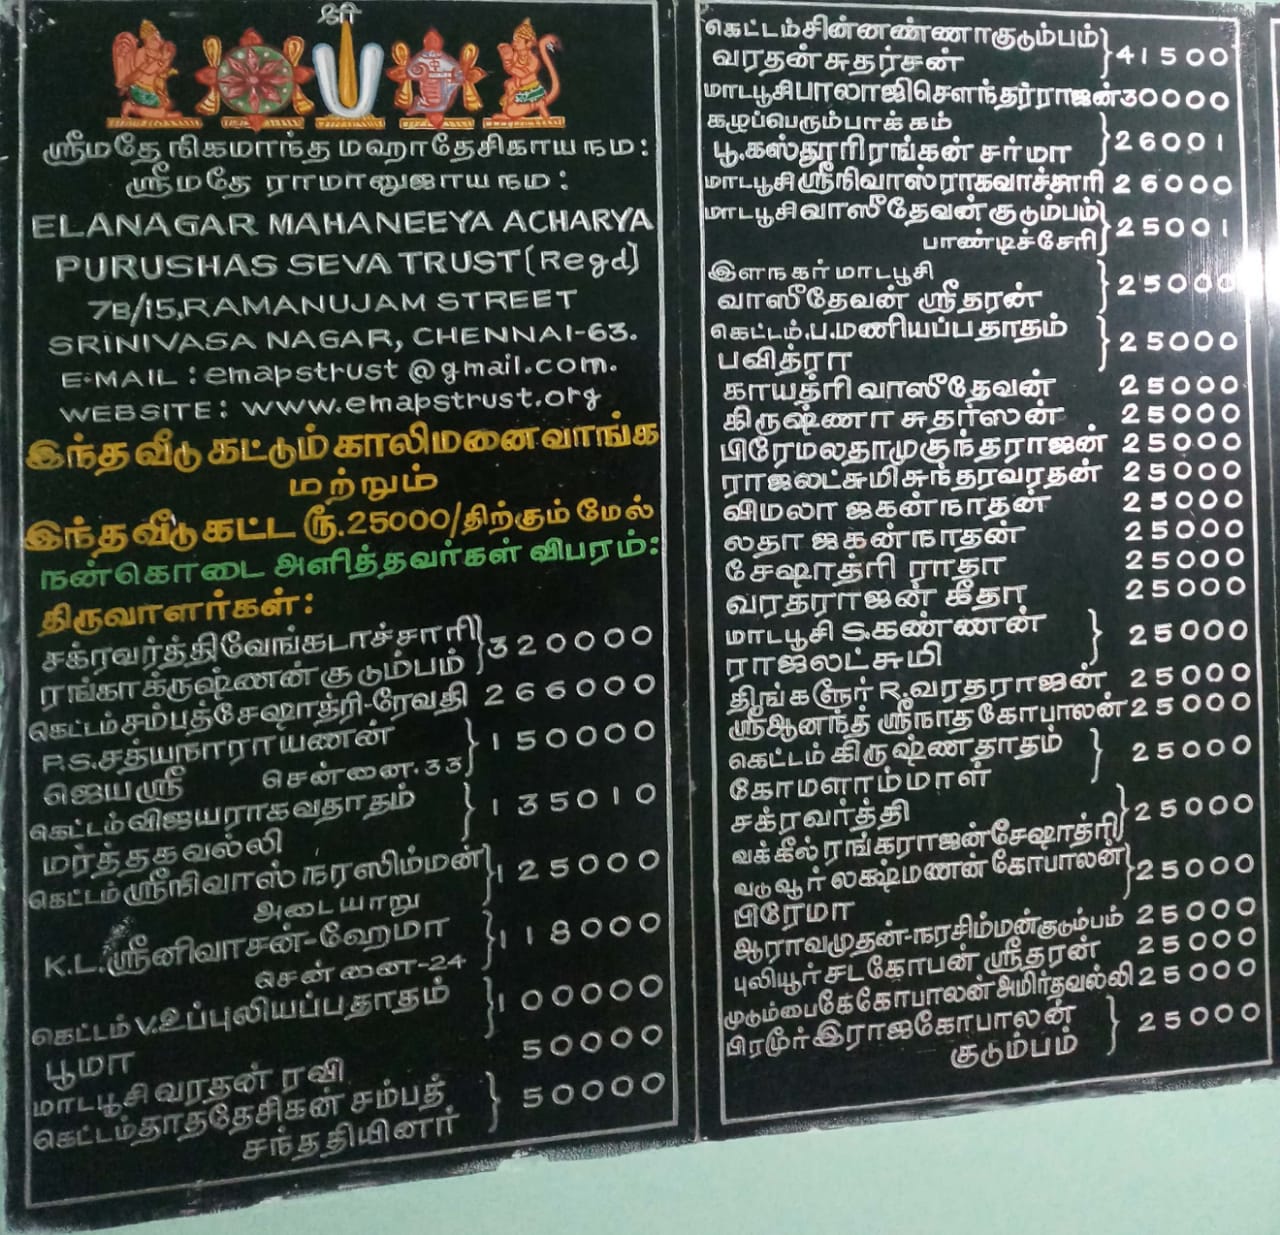 ஸ்ரீ
ஸ்ரீமதே நிகமாந்த மஹாதேசிகாய நம:
ஸ்ரீமதே ராமானுஜாய நம:
ELANAGAR MAHANEEYA ACHARYA
PURUSHAS SEVA TRUST (Regd)
7B/15, RAMANUJAM STREET
SRINIVASA NAGAR, CHENNAI-63.
E-MAIL : emapstrust@gmail.com.
WEBSITE : www.emapstrust.org
இந்த வீடு கட்டும் காலிமனை வாங்க
மற்றும்
இந்த வீடு கட்ட ரூ.25000/திற்கும் மேல்
நன்கொடை அளித்தவர்கள் விபரம்:
திருவாளர்கள்:
சக்ரவர்த்தி வேங்கடாச்சாரி
ரங்கா க்ருஷ்ணன் குடும்பம் } 320000
கெட்டம் சம்பத் சேஷாத்ரி-ரேவதி 266000
P.S.சத்யநாராயணன்
ஜெயஸ்ரீ சென்னை-33 } 150000
கெட்டம் விஜயராகவதாதம்
மர்த்தகவல்லி } 135010
கெட்டம் ஸ்ரீநிவாஸ் நரஸிம்மன்
அடையாறு } 125000
K.L.ஸ்ரீனிவாசன்-ஹேமா
சென்னை-24 } 118000
கெட்டம் V.உப்புலியப்பதாதம்
பூமா } 100000
மாடபூசி வரதன் ரவி 50000
கெட்டம் தாததேசிகன் சம்பத்
சந்ததியினர் } 50000
கெட்டம் சின்னண்ணா குடும்பம்
வரதன் சுதர்சன் } 41500
மாடபூசி பாலாஜி சௌந்தர்ராஜன் 30000
கழுப்பெரும்பாக்கம்
பூ.கஸ்தூரிரங்கன் சர்மா } 26001
மாடபூசி ஸ்ரீநிவாஸ் ராகவாச்சாரி 26000
மாடபூசி வாஸீதேவன் குடும்பம்
பாண்டிச்சேரி } 25001
இளநகர் மாடபூசி
வாஸீதேவன் ஸ்ரீதரன் } 25000
கெட்டம்.ப.மணியப்பதாதம்
பவித்ரா } 25000
காயத்ரி வாஸீதேவன் 25000
கிருஷ்ணா சுதர்ஸன் 25000
பிரேமலதா முகுந்தராஜன் 25000
ராஜலட்சுமி சுந்தரவரதன் 25000
விமலா ஜகன்நாதன் 25000
லதா ஜகன்நாதன் 25000
சேஷாத்ரி ராதா 25000
வரதராஜன் கீதா 25000
மாடபூசி S.கண்ணன்
ராஜலட்சுமி } 25000
திங்களூர் R.வரதராஜன் 25000
ஸ்ரீஆனந்த் ஸ்ரீநாத கோபாலன் 25000
கெட்டம் கிருஷ்ணதாதம்
கோமளாம்மாள் } 25000
சக்ரவர்த்தி
வக்கீல் ரங்கராஜன் சேஷாத்ரி } 25000
வடுவூர் லக்ஷ்மணன் கோபாலன்
பிரேமா } 25000
ஆராவமுதன்-நரசிம்மன் குடும்பம் 25000
புலியூர் சடகோபன் ஸ்ரீதரன் 25000
முடும்பை கே கோபாலன் அமிர்தவல்லி 25000
பிரமூர் இராஜகோபாலன்
குடும்பம் } 25000